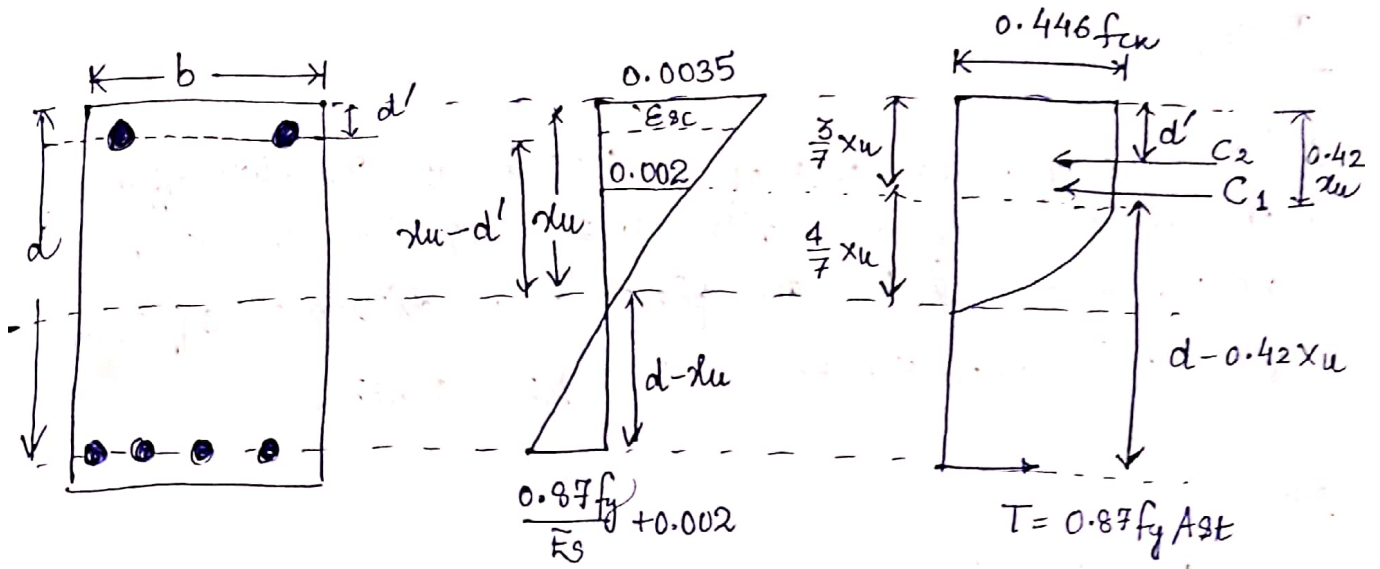 b
d'
d
0.0035
εsc
0.002
xu-d'
xu
d-xu
0.87fy/Es +0.002
0.446fck
3/7 xu
4/7 xu
d'
C2
C1
0.42
xu
d-0.42xu
T= 0.87fy Ast